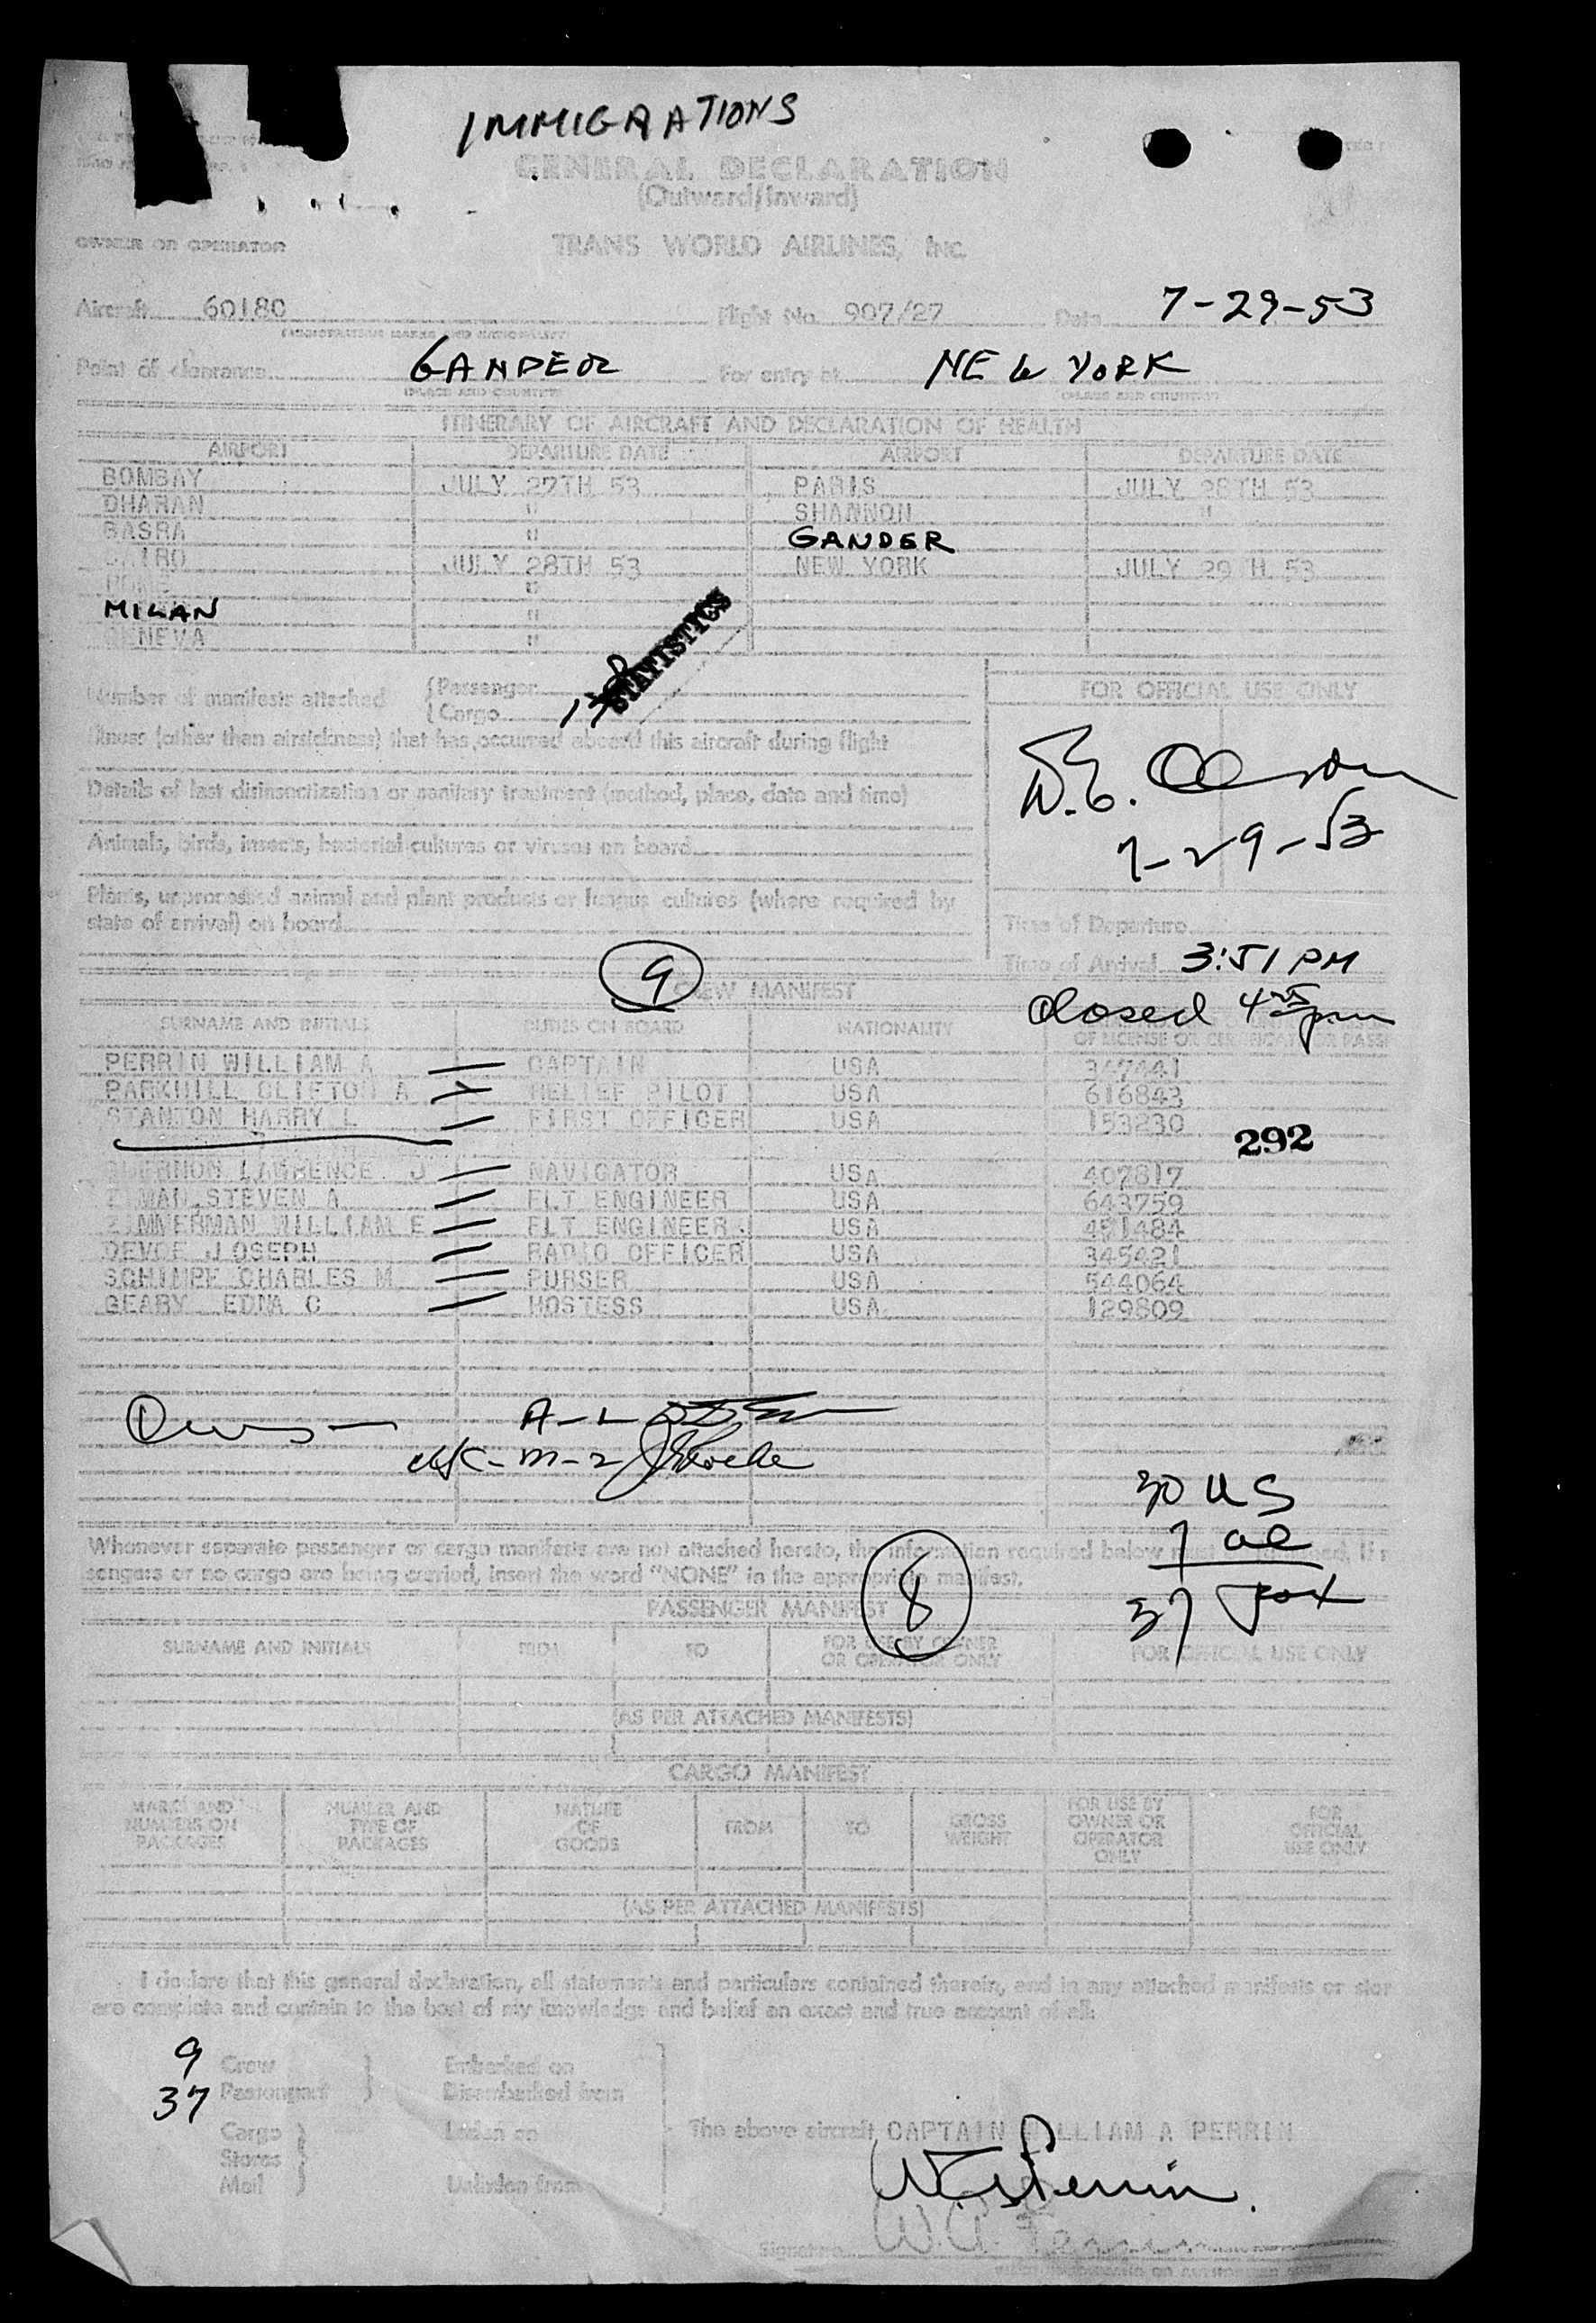 IMMIGRATIONS
GENERAL DECLARATION
(Outward/Inward)
OWNER OR OPERATOR TRANS WORLD AIRLINES, INC.
Aircraft 60180 Flight No. 907/27 Date 7-29-53
(REGISTRATION MARKS AND NATIONALITY)
Point of clearance GANDER For entry at NEW YORK
(PLACE AND COUNTRY) (PLACE AND COUNTRY)
ITINERARY OF AIRCRAFT AND DECLARATION OF HEALTH
AIRPORT DEPARTURE DATE AIRPORT DEPARTURE DATE
BOMBAY JULY 27TH 53 PARIS JULY 28TH 53
DHARAN " SHANNON "
BASRA " GANDER
CAIRO JULY 28TH 53 NEW YORK JULY 29TH 53
ROME "
MILAN "
GENEVA "
STATISTICS
Number of manifests attached {Passenger
{Cargo
FOR OFFICIAL USE ONLY
Illness (other than airsickness) that has occurred aboard this aircraft during flight
Details of last disinsectization or sanitary treatment (method, place, date and time)
7-29-53
Animals, birds, insects, bacterial cultures or viruses on board
Plants, unprocessed animal and plant products or fungus cultures (where required by
state of arrival) on board
Time of Departure
Time of Arrival 3:51 PM
9
CREW MANIFEST
closed 4 pm
SURNAME AND INITIALS DUTIES ON BOARD NATIONALITY
OF LICENSE OR CERTIFICATE OR PASS
PERRIN WILLIAM A CAPTAIN USA 347441
PARKHILL CLIFTON A RELIEF PILOT USA 616843
STANTON HARRY L FIRST OFFICER USA 153230
292
LAWRENCE J NAVIGATOR USA 407817
STEVEN A FLT ENGINEER USA 643759
ZIMMERMAN WILLIAM E FLT ENGINEER USA 451484
DEVOE JOSEPH RADIO OFFICER USA 345421
SCHIMPF CHARLES M PURSER USA 544064
GEARY EDNA C HOSTESS USA 129809
30 US
7 al
37 tot
Whenever separate passenger or cargo manifests are not attached hereto, the information required below must
sengers or no cargo are being carried, insert the word "NONE" in the appropriate manifest.
8
PASSENGER MANIFEST
SURNAME AND INITIALS FROM TO FOR USE BY OWNER OR OPERATOR ONLY FOR OFFICIAL USE ONLY
(AS PER ATTACHED MANIFESTS)
CARGO MANIFEST
MARKS AND NUMBERS ON PACKAGES NUMBER AND TYPE OF PACKAGES NATURE OF GOODS FROM TO GROSS WEIGHT FOR USE BY OWNER OR OPERATOR ONLY FOR OFFICIAL USE ONLY
(AS PER ATTACHED MANIFESTS)
I declare that this general declaration, all statements and particulars contained therein, and in any attached manifests or stor
are complete and contain to the best of my knowledge and belief an exact and true account of all:
9 Crew Embarked on
37 Passengers Disembarked from
Cargo Laden on The above aircraft CAPTAIN WILLIAM A PERRIN
Stores
Mail Unladen from
W A Perrin
Signature W.A. Perrin